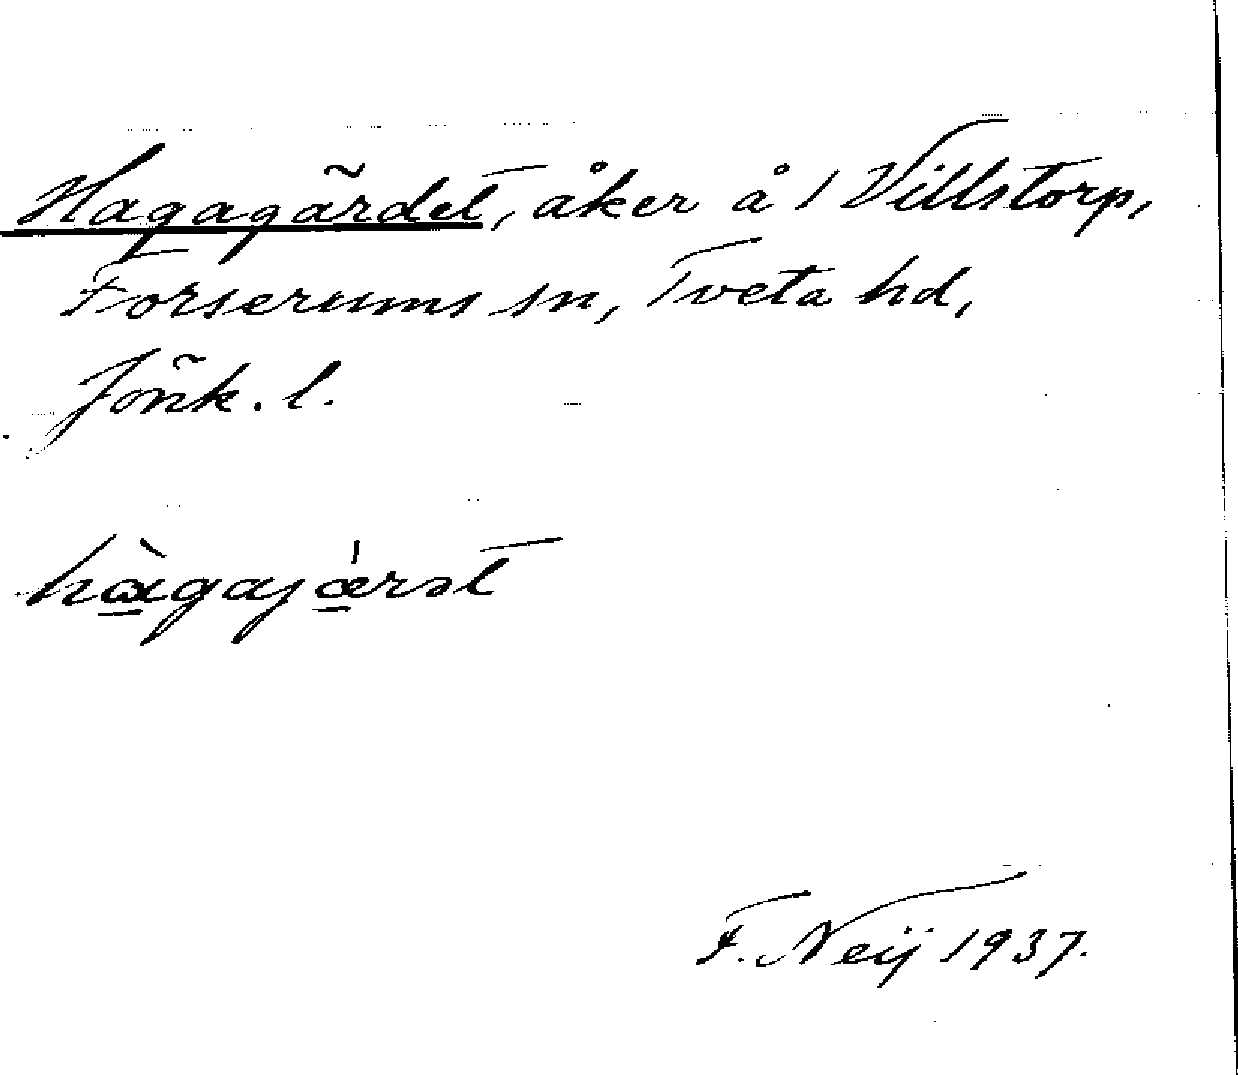 Hagagärdet, åker å 1 Villstorp,
Forserums sn, Tveta hd,
Jönk. l.
hàgajǽrst
F. Neij 1937.